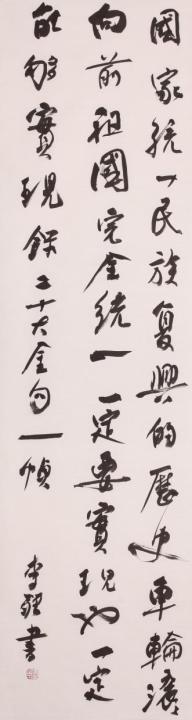 國家統一民族复興的歷史車輪滾〻
向前祖國完全統一一定要實現也一定
能夠實現錄二十大金句一幀
李書